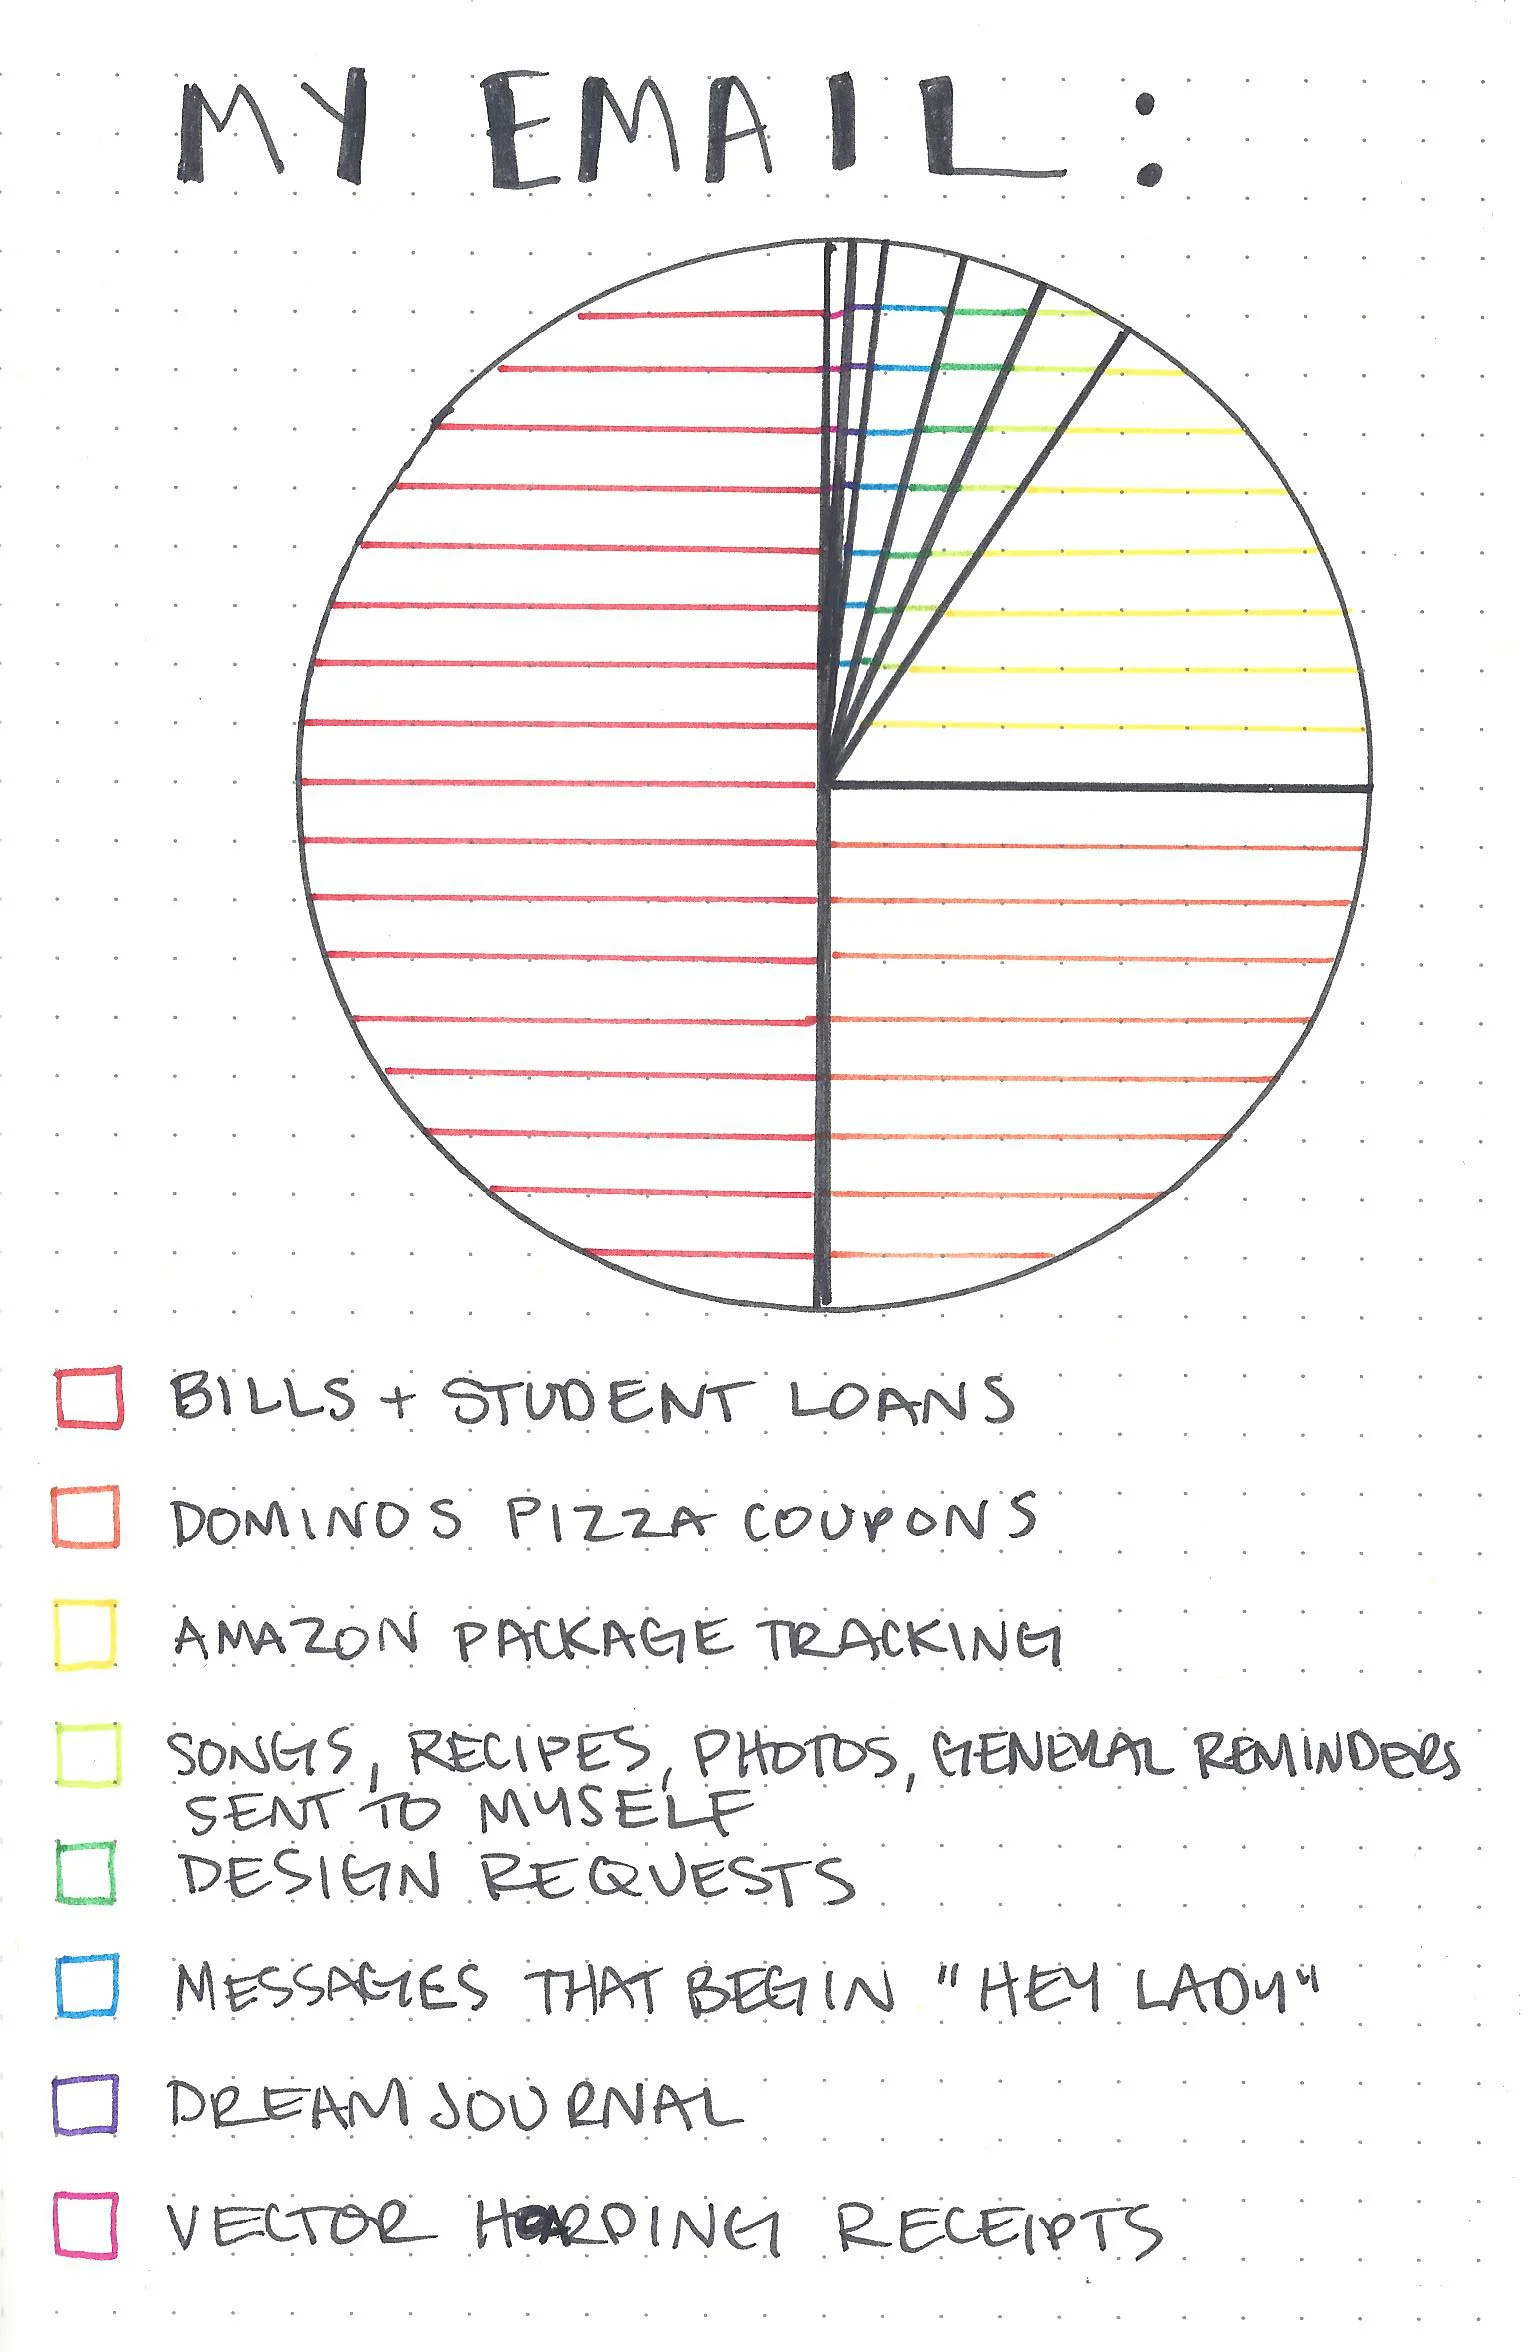 MY EMAIL:
BILLS + STUDENT LOANS
DOMINOS PIZZA COUPONS
AMAZON PACKAGE TRACKING
SONGS, RECIPES, PHOTOS, GENERAL REMINDERS
SENT TO MYSELF
DESIGN REQUESTS
MESSAGES THAT BEGIN "HEY LADY"
DREAM JOURNAL
VECTOR HOARDING RECEIPTS